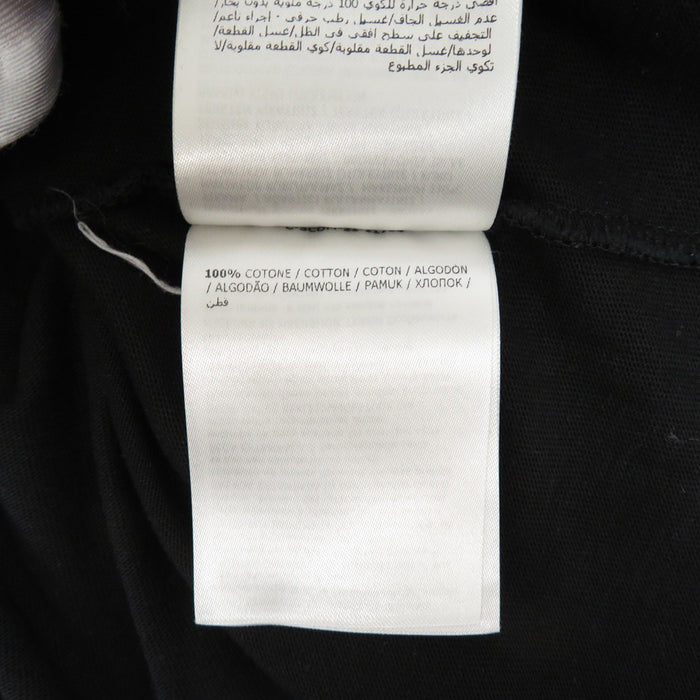 أقصى درجة حرارة للكوي 100 درجة مئوية بدون بخار/
عدم الغسيل الجاف/غسيل رطب حرفي - إجراء ناعم/
التجفيف على سطح افقي في الظل/غسل القطعة/
لوحدها/غسل القطعة مقلوبة/كوي القطعة مقلوبة/لا
تكوي الجزء المطبوع
100% COTONE / COTTON / COTON / ALGODÓN
/ ALGODÃO / BAUMWOLLE / PAMUK / ХЛОПОК /
قطن